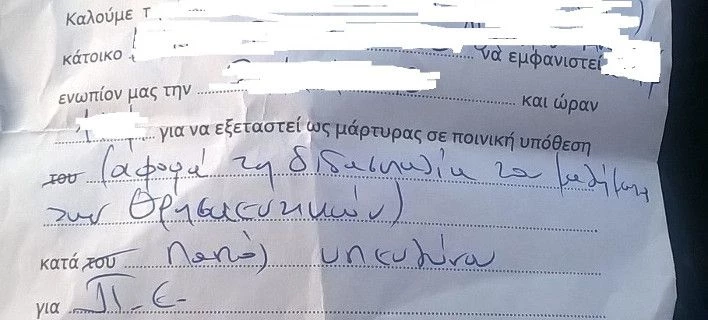 Καλούμε τ
κάτοικο να εμφανιστεί
ενωπίον μας την και ώραν
για να εξεταστεί ως μάρτυρας σε ποινική υπόθεση
του (αφορά τη διδασκαλία του μαθήματος
των Θρησκευτικών)
κατά του παντός υπευθύνου
για Π.Ε.